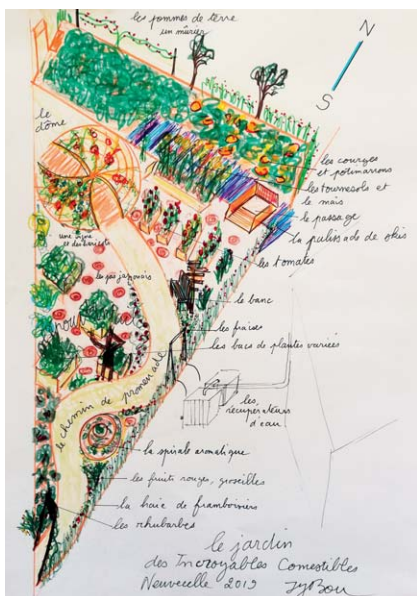 les pommes de terre
un mûrier
N
S
le
dôme
les courges
et potimarrons
les tournesols et
le maïs
le passage
la palissade de skis
les tomates
une vigne
les pas japonais
le banc
les fraises
les bacs de plantes variées
le chemin de promenade
les
récupérateurs
d'eau
la spirale aromatique
les fruits rouges, groseilles
la haie de framboisiers
les rhubarbes
le jardin
des Incroyables Comestibles
Neuvecelle 2019